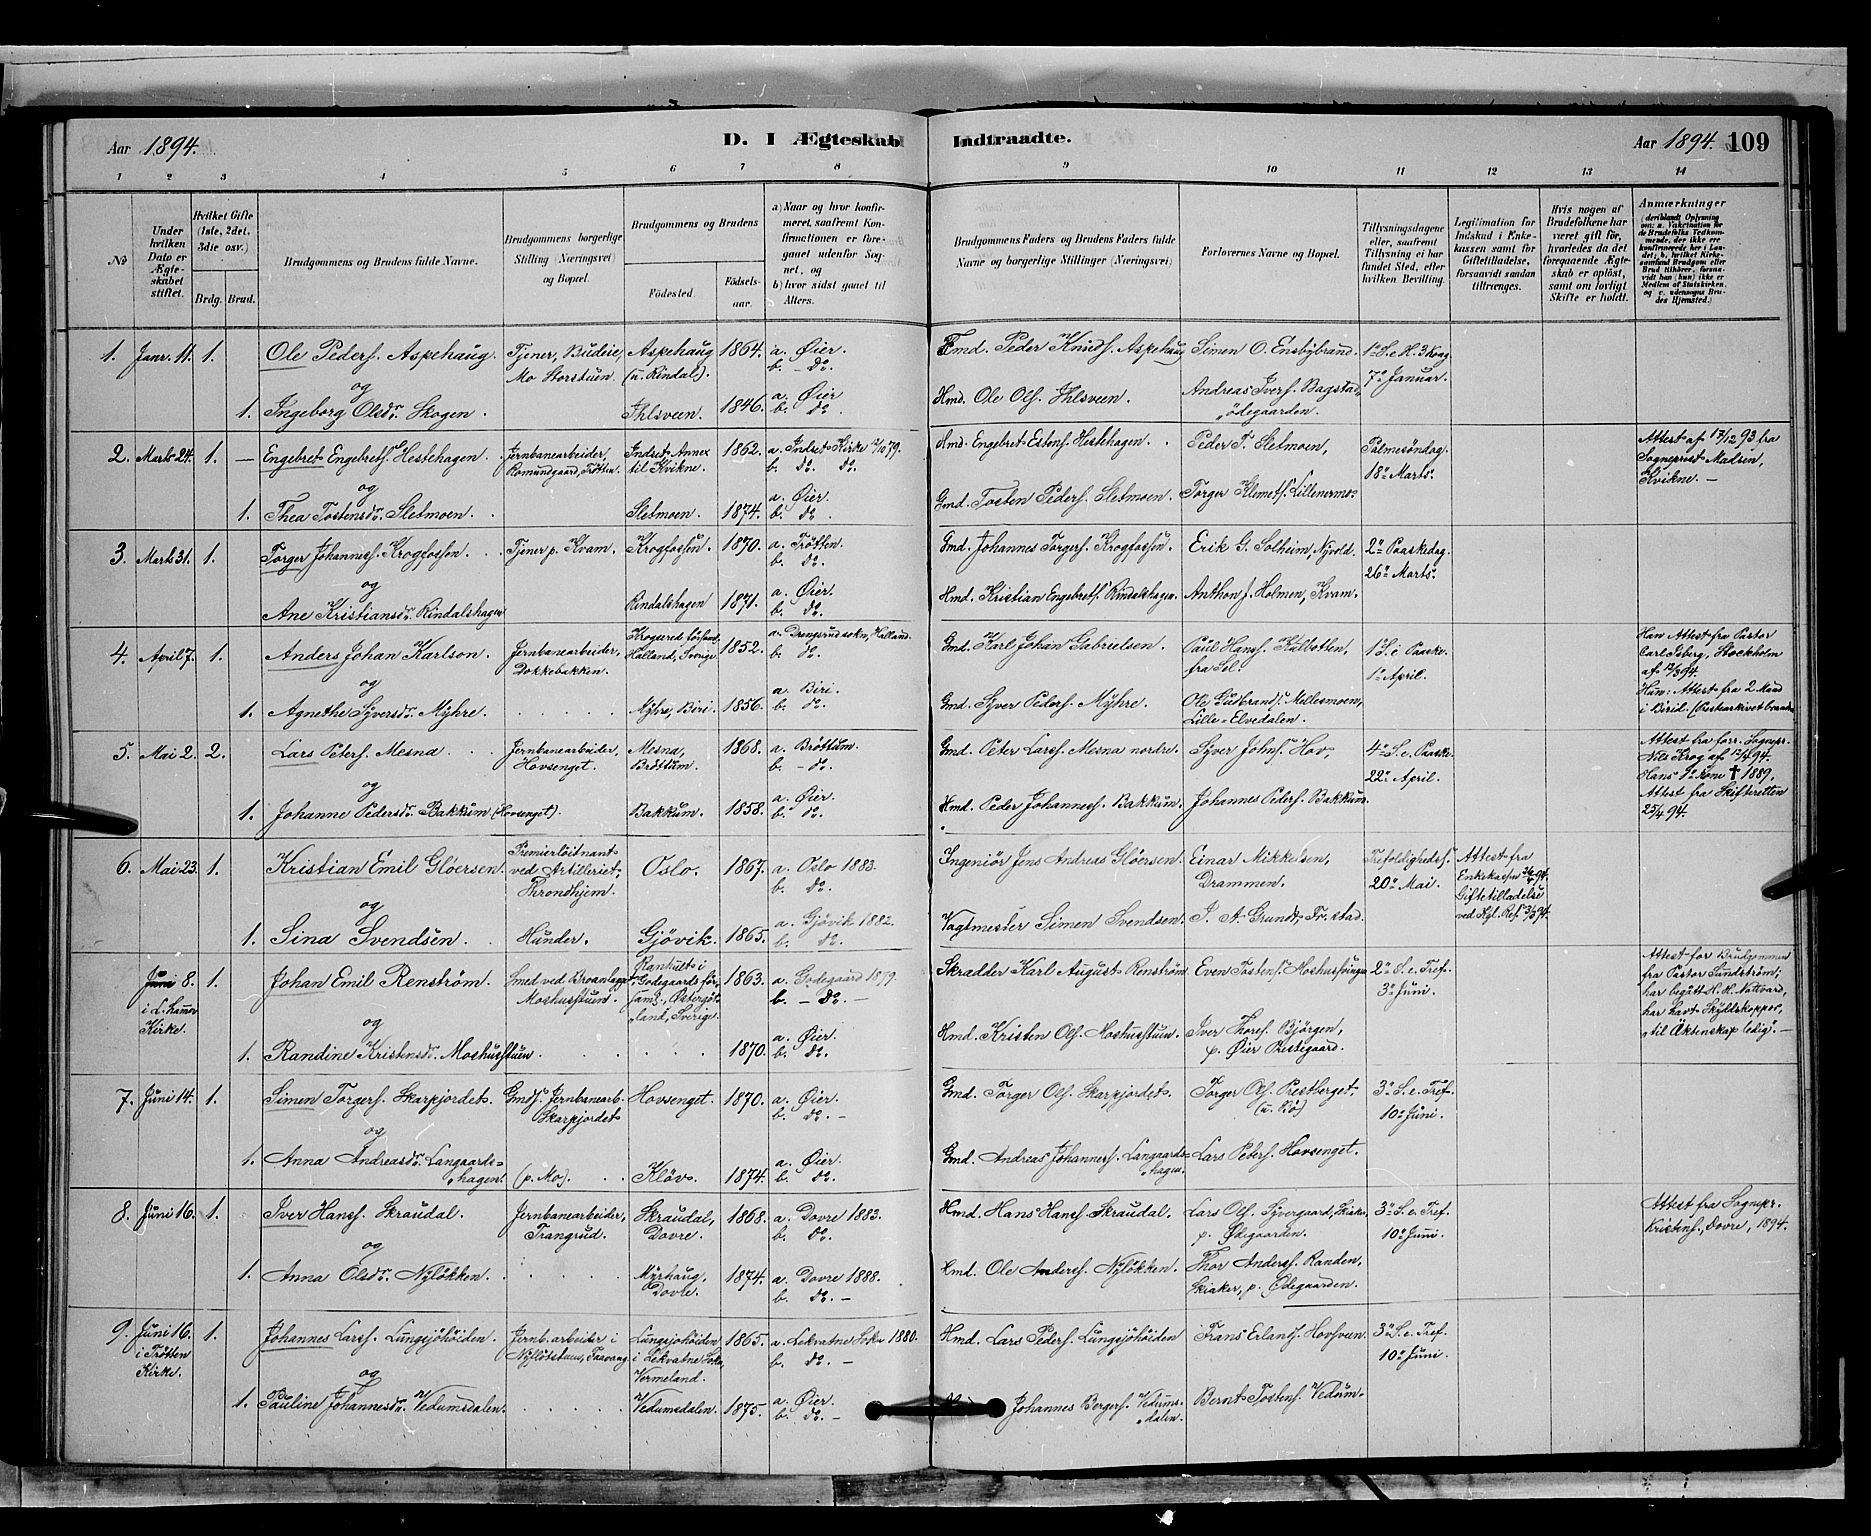 Aar 1894.
D. I Ægteskab Indtraadte.
Aar 1894. 109
1 2 3 4 5 6 7 8 9 10 11 12 13 14
No
Under hvilken Dato er Ægteskabet stiftet.
Hvilket Gifte (1ste, 2det, 3die osv.)
Brdg. Brud.
Brudgommens og Brudens fulde Navne.
Brudgommens borgerlige Stilling (Næringsvei) og Bopæl.
Brudgommens og Brudens
Fødested.
Fødsels-aar.
a) Naar og hvor konfirmeret, saafremt Konfirmationen er foregaaet udenfor Sognet, og
b) hvor sidst gaaet til Alters.
Brudgommens Faders og Brudens Faders fulde Navne og borgerlige Stillinger (Næringsvei)
Forlovernes Navne og Bopæl.
Tillysningsdagene eller, saafremt Tillysning ei har fundet Sted, efter hvilken Bevilling.
Legitimation for Indskud i Enkekassen samt for Giftetilladelse, forsaavidt saadan tiltrænges.
Hvis nogen af Brudefolkene har været gift før, hvorledes da det foregaaende Ægteskab er opløst, samt om lovligt Skifte er holdt.
Anmærkninger
(deriblandt Oplysning om: a. Vakcination for de Brudefolks Vedkommende, der ikke ere konfirmerede her i Landet; b. hvilket Kirkesamfund Brudgom eller Brud tilhører, forsaavidt han (hun) ikke er Medlem af Statskirken, og c. udensogns Brudes Hjemsted.)
1. Janr. 11. 1. Ole Peders. Aspehaug. Tjener, Budeie, Mo Storstuen. Aspehaug (u. Rindal). 1864. a. Øier. b. do. Hmd. Peder Knuds. Aspehaug Simen O. Ensbybrand. 1o S. e. H. 3 Kong. 7o Januar.
og
1. Ingeborg Olsdr. Skogen. Ihlsveen. 1846. a. Øier b. do. Hmd. Ole Ols. Ihlsveen. Andreas Ivers. Bagstadødegaarden.
2. Marts 24. 1. Engebret Engebrets. Hestehagen. Jernbanearbeider, Romundgaard, Trötten. Indset Annex til Kvikne. 1862. a. Indset Kirke 79. b. do. do. Hmd. Engebret Estens. Hestehagen. Peder T. Sletmoen, Palmesöndag. 18o Marts. Attest af 17/12 93 fra Sogneprest Madsen, Kvikne. –
og
1. Thea Tostensdr. Sletmoen. Sletmoen. 1874. a. Øier. b. do. Gmd. Tosten Peders. Sletmoen. Torger Klemets. Lillenermo.
3. Marts 31. 1. Torger Johanness. Krogfossen. Tjener p. Kvam. Krogfossen. 1870. a. Trötten. b. do. Gmd. Johannes Torgers. Krogfossen. Erik G. Solheim, Nyvold. 2o Paaskedag. 26o Marts.
og
Ane Kristiansdr. Rindalshagen Rindalshagen 1871. a. Øier. b. do. Hmd. Kristian Engebrets. Rindalshagen. Anthon J. Holmen, Kvam.
4. April 7. 1. Anders Johan Karlson. Jernbanearbeider, Dokkebakken. Halland, Sverige 1852. a. Drengsred sokn, Halland. b. do. Gmd. Karl Johan Gabrielsen. Paul Hans. Kalbotten, fra Sel. 1o S. e. Paaske. 1o April. Han Attest fra Pastor Carl Isberg, Stockholm af 12/3 94.
og
1. Agnethe Syversdr. Myhre. Myhre, Biri. 1856. a. Biri. b. do. Gmd. Syver Peders. Myhre. Ole Gudbrands. Mellesmoen, Lille-Elvedalen. Hun: Attest fra 2 Mænd i Birid. (Prestearkivet brændt
5. Mai 2. 2. Lars Peters. Mesna. Jernbanearbeider, Hovsenget. Mesna, Bröttum. 1868. a. Bröttum. b. – do. Gmd. Peter Larss. Mesna nordre. Syver Johns. Hov, 4o S. e. Paaske. 22o April. Attest fra forr. Sognepr. Nils Krog af 12/4 94. Hans 1o kone † 1889.
og
1. Johanne Pedersdr. Bakkum (Hovsenget). Bakkum. 1858. a. Øier. b. do. Hmd. Peder Johanness. Bakkum. Johannes Peders. Bakkum. Attest fra Skifteretten 25/4 94.
6. Mai 23. 1. Kristian Emil Glöersen. Premierlöitnant ved Artilleriet, Throndhjem. Oslo. 1867. a. Oslo 1883. b. do. Ingeniör Jens Andreas Glöersen. Einar Mikkelsen, Drammen. Trefoldighedss. 20o Mai. Attest fra Enkekassen 26/4 94. Giftetilladelse ved Kgl. Res. 3/3 94.
og
1. Sina Svendsen. Hunder. Gjövik. 1865. a. Gjövik 1882. b. do. Vagtmester Simen Svendsen. J. A. Grundt, Fr.stad.
Juni 8. i L.hamer Kirke. 1. Johan Emil Renström. Smed ved Broanlægget, Moshusstuen. Ranhult i Godegaards förjaml., Östergötland, Sverige. 1863. a. Godegaard 1879. b. – do. – Skrædder Karl August Renström Even Tostens. Moshussvingen 2o S. e. Tref. 3o Juni. Attest for Brudgommen fra Pastor Sundström; har begått H. H. Nattvard, har havt Skyddskoppor, til Äktenskap ledig. –
og
1. Randine Kristensdr. Moshusstuen. 1870. a. Øier. b. do. Hmd. Kristen Ols. Moshusstuen. Iver Thores. Björgen, p. Øier Prestegaard.
7. Juni 14. 1. Simen Torgers. Skarpjordet. Gmds. Jernbanearb. Skarpjordet. Hovsenget. 1870. a. Øier. b. do. – Gmd. Torger Ols. Skarpjordet. Torger Ols. Prestberget, (u. Bö) 3o S. e. Tref. 10o Juni.
og
1. Anna Andreasdr. Langaardshagen. (p. Mo). Klöva. 1874. a. Øier. b. do. Gmd. Andreas Johanness. Langaardshagen. Lars Peters. Hovsenget.
8. Juni 16. 1. Iver Hans. Skraudal. Jernbanearbeider, Trangrud. Skraudal, Dovre. 1868. a. Dovre 1883. b. do. Hmd. Hans Hans. Skraudal. Lars Ols. Syvergaard, Skiaker p. Ödegaarden. 3o S. e. Tref. 10o Juni. Attest fra Sognepr. Kristens., Dovre, 1894.
og
1. Anna Olsdr. Nylökken. Myrhaug, Dovre. 1874. a. Dovre 1888. b. do. – Hmd. Ole Anders. Nylökken. Thor Anderss. Randen, Skiaker, p. Ödegaarden.
9. Juni 16. i Trötten Kirke. 1. Johannes Larss. Lungsjöhöiden. Jernb. arbeider i Nyflötstuen, Faavang Lungsjöhöiden i Lekvatne Sokn, Vermeland. 1865. a. Lekvatne Sokn 1880. b. do. – Hmd. Lars Peders. Lungsjöhöiden Frans Erlands. Hovsveen. 3o S. e. Tref. 10o Juni.
og
1. Pauline Johannesdr. Vedumsdalen. Vedumsdalen. 1875. a. Øier. b. do. – Johannes Bergers. Vedumsdalen. Bernt Tostens. Vedum.